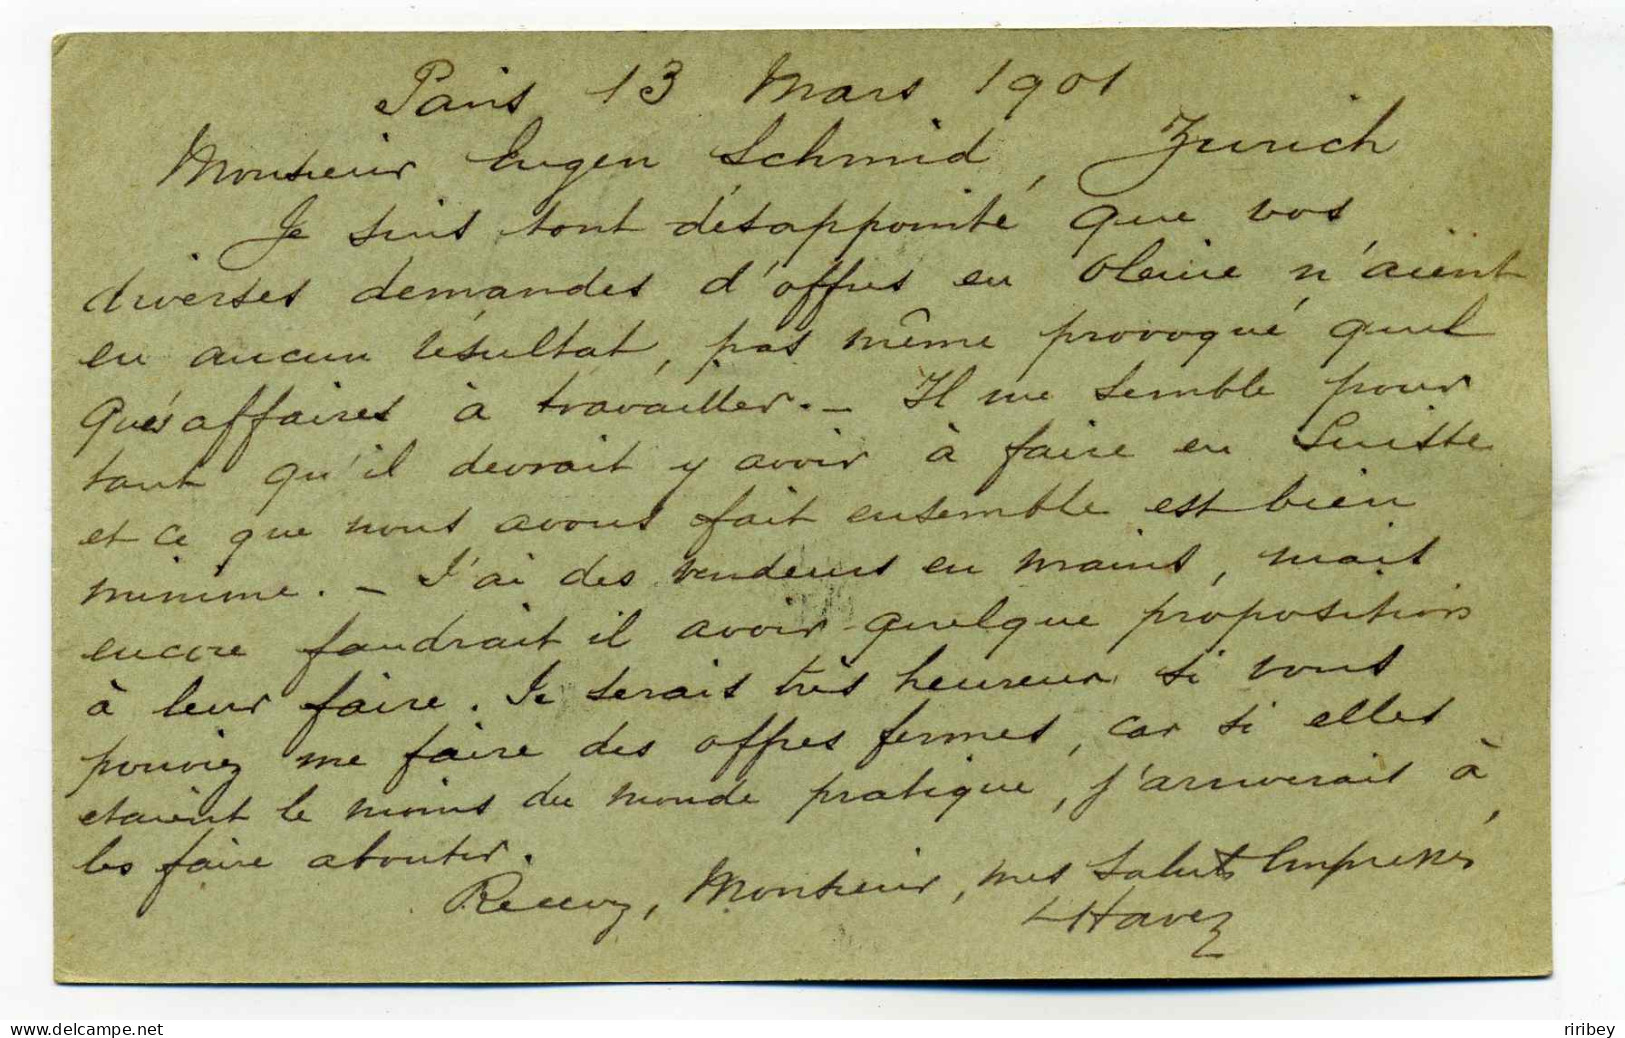 Paris 13 Mars 1901
Monsieur Eugen Schmid, Zurich
Je suis tout désappointé que vos
diverses demandes d'offres en n'aient
eu aucun résultat, pas même provoqué quel
ques affaires à travailler. – Il me semble pour
tant qu'il devrait y avoir à faire en Suisse
et ce que nous avons fait ensemble est bien
minime. – J'ai des vendeurs en mains, mais
encore faudrait il avoir quelque propositions
à leur faire. Je serais très heureux si vous
pouviez me faire des offres fermes, car si elles
etaient le moins du monde pratique, j'arriverais à
les faire aboutir.
Recevez, Monsieur, mes Saluts Empressés
LHavez
riribey